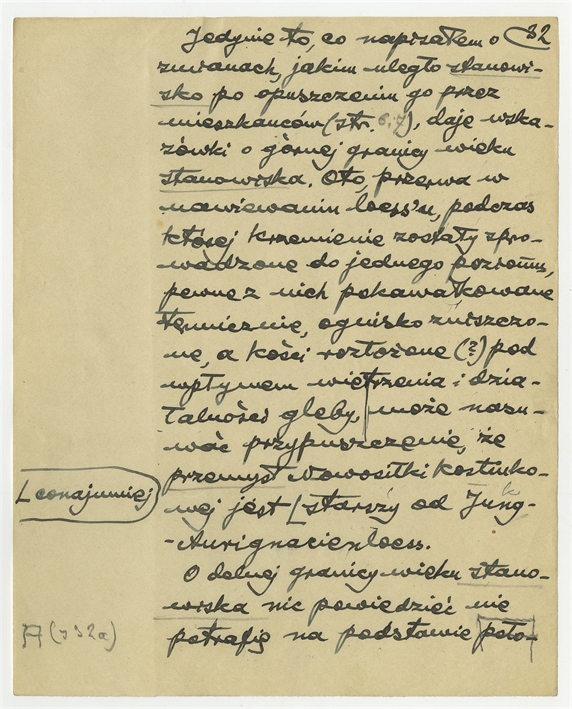 32
Jedynie to, co napisałem o
zmianach, jakim uległo stanowi-
sko po opuszczeniu go przez
mieszkańców (str. 6,7), daje wska-
zówki o górnej granicy wieku
stanowiska. Oto, przerwa w
nawiewaniu loess'u, podczas
której krzemienie zostały spro-
wadzone do jednego poziomu,
pewne z nich pokawałkowane
termicznie, ognisko zniszczo-
ne, a kości rozłożone (?) pod
wpływem wietrzenia i dzia-
łalności gleby, może nasu-
wać przypuszczenie, że
przemysł Nowosiłki Kostiuko-
[conajmniej
wej jest [starszy od Jung-
-Aurignacienloess.
O dolnej granicy wieku stano-
wiska nic powiedzieć nie
(s 32a)
potrafię na podstawie poło-